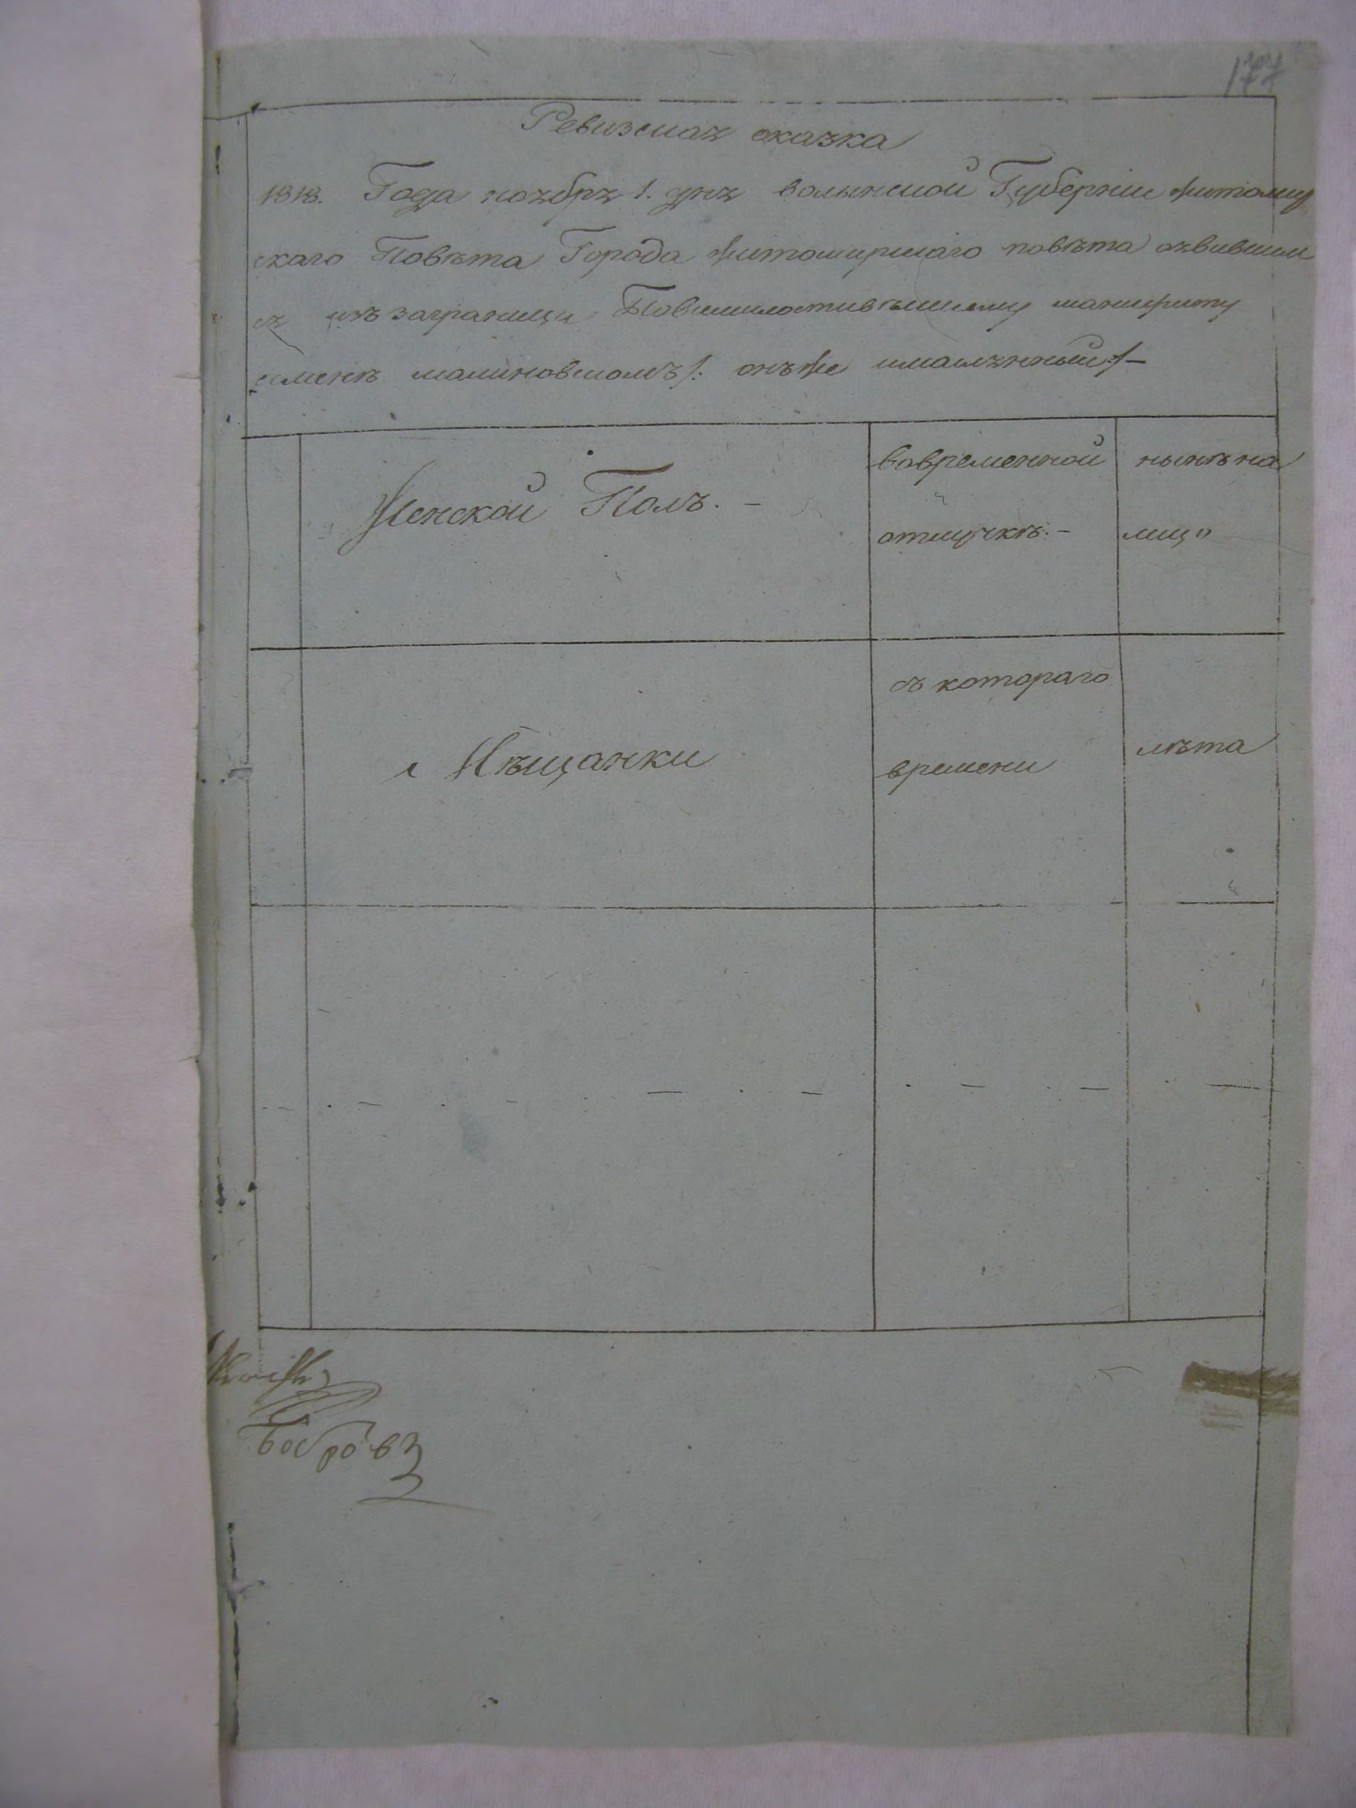 177
Ревизская сказка
1818. Года ноября 1. дня волынской Губерніи житомир
скаго Повѣта Города житомирскаго повѣта оявившем
ся изъ заграницы Повсемилостивѣйшему манифесту
малиновскомъ /: онъ же
Женской Полъ. –
вовременной
отлучкѣ. –
нынѣ на
лицо
Мѣщанки
съ котораго
времени
лѣта
Бобровъ